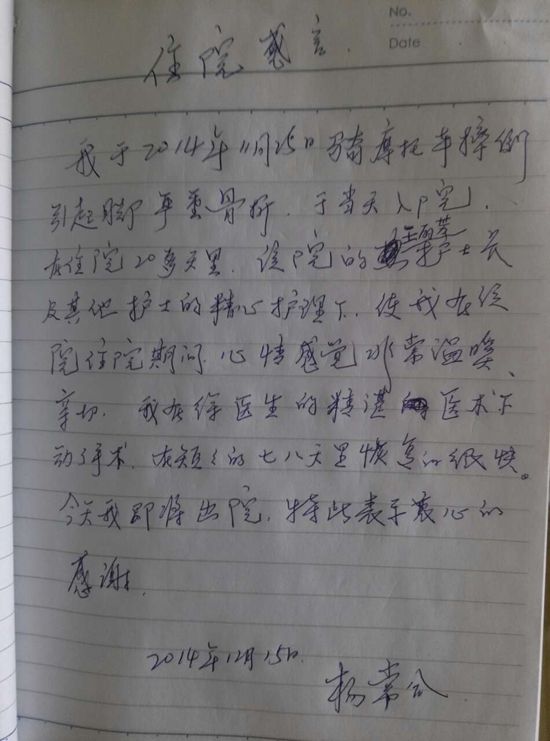 No.
Date
住院感言
我于2014年11月25日骑摩托车摔倒
引起脚严重骨折.于当天入院.
在住院20多天里.给院的王 护士长
及其他护士的精心护理下.使我在给
院住院期间.心情感觉非常温暖、
亲切.我在徐医生的精湛医术下
动手术.在短短的七八天里恢复的很快。
今天我即将出院.特此表示衷心的
感谢.
2014年12月15日.
杨常